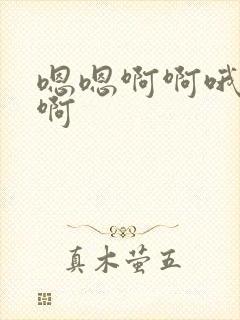 嗯嗯啊啊哦
啊
真木萤五